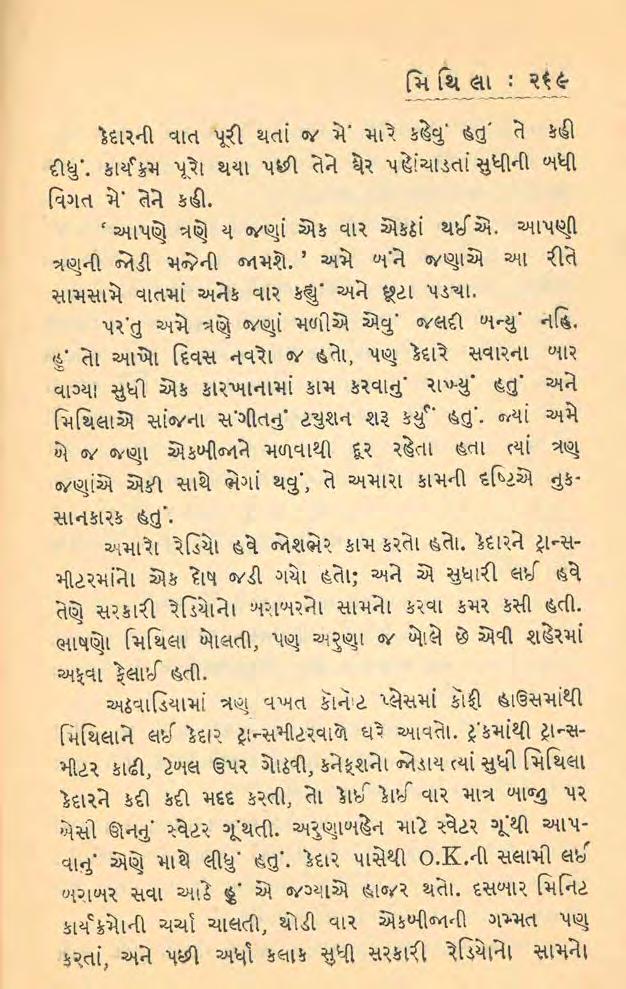 મિથિલા : ૨૬૯
કેદારની વાત પૂરી થતાં જ મેં મારે કહેવું હતું તે કહી
દીધું. કાર્યક્રમ પૂરો થયા પછી તેને ઘેર પહોંચાડતાં સુધીની બધી
વિગત મેં તેને કહી.
‘ આપણે ત્રણે ય જણાં એક વાર એકઠાં થઈએ. આપણી
ત્રણની જોડી મજેની જામશે. ’ અમે બંને જણાએ આ રીતે
સામસામે વાતમાં અનેક વાર કહ્યું અને છૂટા પડ્યા.
પરંતુ અમે ત્રણે જણાં મળીએ એવું જલદી બન્યું નહિ.
હું તો આખો દિવસ નવરો જ હતો, પણ કેદારે સવારના બાર
વાગ્યા સુધી એક કારખાનામાં કામ કરવાનું રાખ્યું હતું અને
મિથિલાએ સાંજના સંગીતનું ટ્યુશન શરૂ કર્યું હતું. જ્યાં અમે
બે જ જણા એકબીજાને મળવાથી દૂર રહેતા હતા ત્યાં ત્રણ
જણાંએ એકી સાથે ભેગાં થવું, તે અમારા કામની દૃષ્ટિએ નુક-
સાનકારક હતું.
અમારો રેડિયો હવે જોશભેર કામ કરતો હતો. કેદારને ટ્રાન્સ-
મીટરમાંનો એક દોષ જડી ગયો હતો; અને એ સુધારી લઈ હવે
તેણે સરકારી રેડિયોનો બરાબરનો સામનો કરવા કમર કસી હતી.
ભાષણો મિથિલા બોલતી, પણ અરુણા જ બોલે છે એવી શહેરમાં
અફવા ફેલાઈ હતી.
અઠવાડિયામાં ત્રણ વખત કૉનોટ પ્લેસમાં કૉફી હાઉસમાંથી
મિથિલાને લઈ કેદાર ટ્રાન્સમીટરવાળે ઘરે આવતો. ટ્રંકમાંથી ટ્રાન્સ-
મીટર કાઢી, ટેબલ ઉપર ગોઠવી, કનેક્શનો જોડાય ત્યાં સુધી મિથિલા
કેદારને કદી કદી મદદ કરતી, તો કોઈ કોઈ વાર માત્ર બાજુ પર
બેસી ઊનનું સ્વેટર ગૂંથતી. અરુણાબહેન માટે સ્વેટર ગૂંથી આપ-
વાનું એણે માથે લીધું હતું. કેદાર પાસેથી O.K.ની સલામી લઈ
બરાબર સવા આઠે હું એ જગ્યાએ હાજર થતો. દસબાર મિનિટ
કાર્યક્રમોની ચર્ચા ચાલતી, થોડી વાર એકબીજાની ગમ્મત પણ
કરતાં, અને પછી અર્ધા કલાક સુધી સરકારી રેડિયોનો સામનો